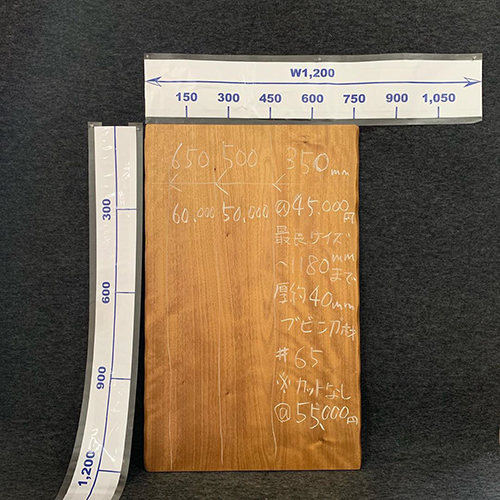 W1,200
150 300 450 600 750 900 1,050
300
600
900
1,200
650 500 350mm
60,000 50,000 @45,000円
最長サイズ
~1180mmまで
厚約40mm
ブビンガ材
#65
※カットなし
@55,000円